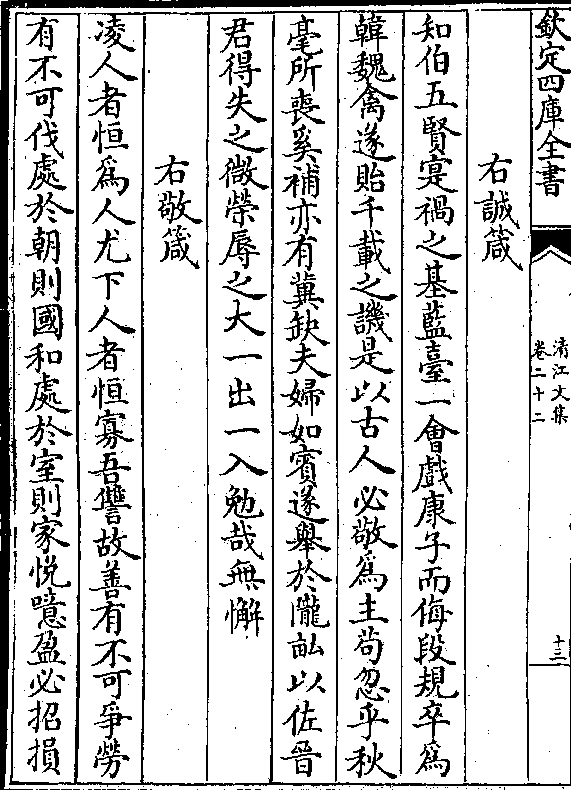 欽定四庫全書
清江文集
卷二十二
十三
右誠箴
知伯五賢寔禍之基藍臺一會戲康子而侮段規卒爲
韓魏禽遂貽千載之譏是以古人必敬爲主苟忽乎秋
毫所喪奚補亦有冀缺夫婦如賓遂舉於隴畝以佐晉
君得失之微榮辱之大一出一入勉哉無懈
右敬箴
凌人者恒爲人尤下人者恒寡吾讐故善有不可爭勞
有不可伐處於朝則國和處於室則家悅噫盈必招損